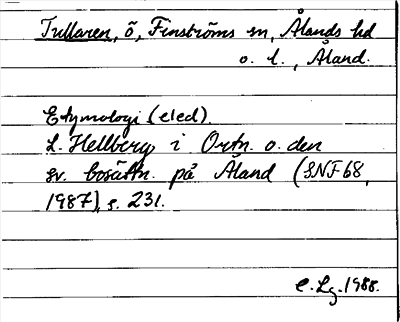 Tullaren, ö, Finströms sn, Ålands hd
o. l., Åland.
Etymologi (eled).
L. Hellberg i Ortn. o. den
sv. bosättn. på Åland (SNF 68,
1987), s. 231.
C. Lg. 1988.